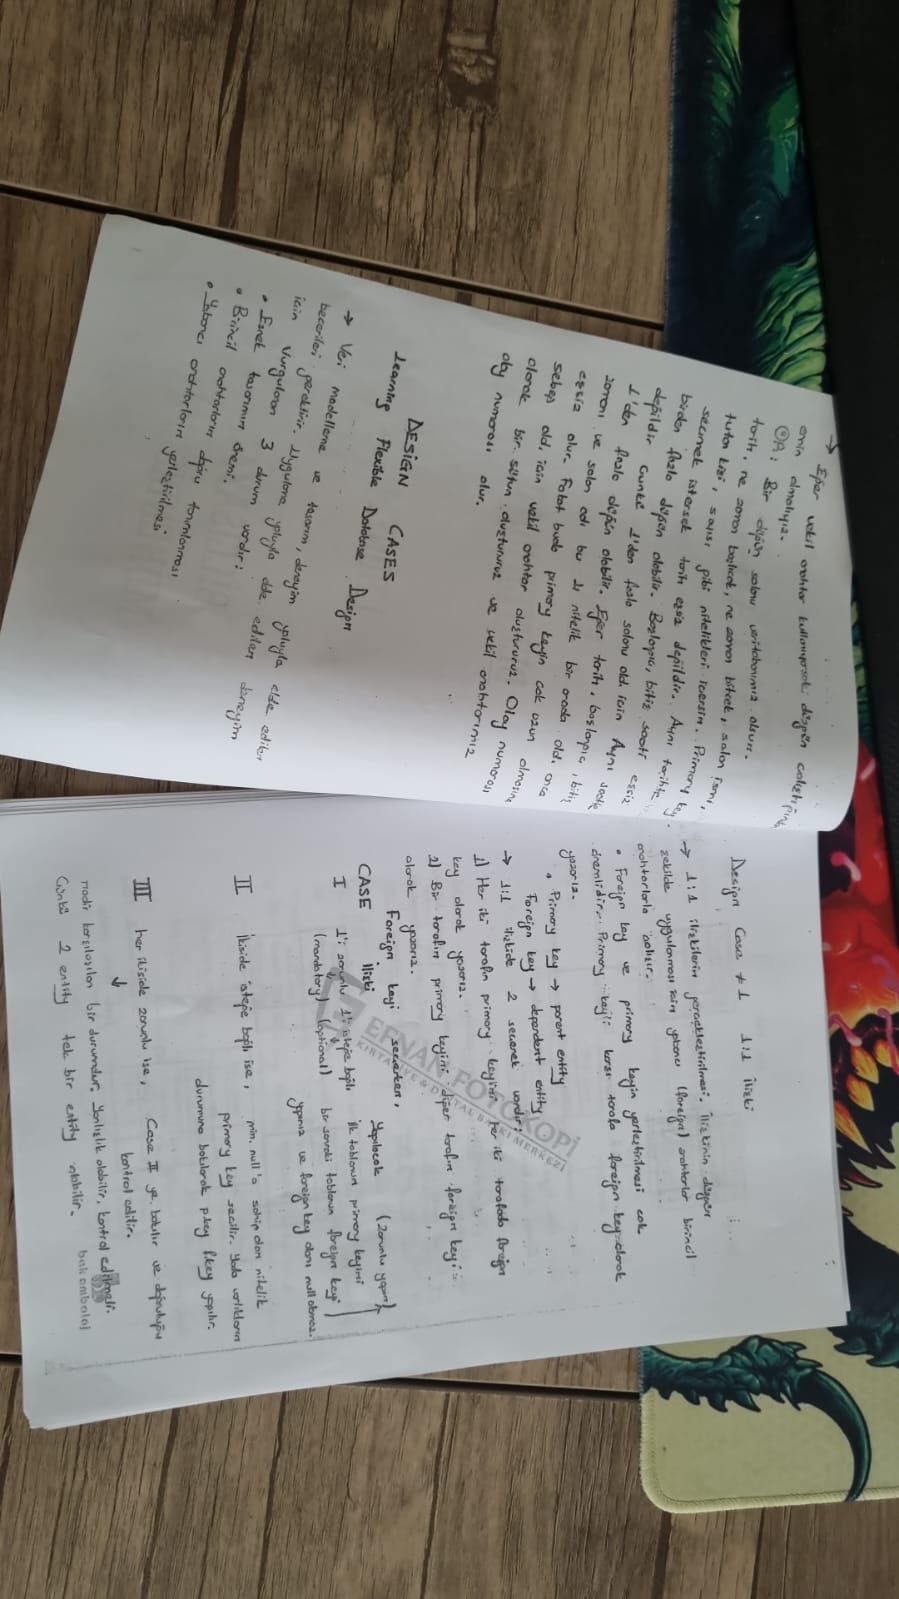 → Eğer vekil anahtar kullanıyorsak düzgün çalıştığına
emin olmalıyız.
ÖR: Bir düğün salonu veritabanımız olsun.
tarih, ne zaman başladı, ne zaman bitecek, salon ismi,
tutan kişi, sayısı gibi nitelikleri içersin. Primary key
seçmek istersek tarih eşsiz değildir. Aynı tarihte
birden fazla düğün olabilir. Başlangıç, bitiş saati eşsiz
değildir çünkü 1'den fazla salonu old. için Aynı saatte
1'den fazla düğün olabilir. Eğer tarih, başlangıç, bitiş
zamanı ve salon adı bu 4 nitelik bir arada old.
eşsiz olur. Fakat buda primary keyin çok uzun olmasına
sebep old. için vekil anahtar oluştururuz. Olay numarası
olarak bir sütun oluştururuz ve vekil anahtarımız
olay numarası olur.
DESIGN CASES
Learning Flexible Database Design
→ Veri modelleme ve tasarım, deneyim yoluyla elde edilen
becerileri gerektirir. Uygulama yoluyla elde edilen deneyim
için vurgulanan 3 durum vardır:
• Esnek tasarımın önemi.
• Birincil anahtarların doğru tanımlanması
• Yabancı anahtarların yerleştirilmesi
Design Case #1 1:1 ilişki
→ 1:1 ilişkilerin gerçekleştirilmesi, ilişkinin düzgün
şekilde uygulanması için yabancı (foreign) anahtarlar birincil
anahtarlarla çalışır.
• Foreign key ve primary keyin yerleştirilmesi çok
önemlidir. Primary keyi karşı tarafa foreign key olarak
yazarız.
• Primary key → parent entity
Foreign key → dependent entity
→ 1:1 ilişkide 2 seçenek vardır;
1) Her iki tarafın primary keyini her iki tarafada foreign
key olarak yazarız.
2) Bir tarafın primary keyini diğer tarafın foreign keyi
olarak yazarız.
Foreign keyi seçerken,
CASE ilişki Yapılacak (zorunlu yapın)
I 1: zorunlu 1: isteğe bağlı ilk tablonun primary keyimi
(mandatory) (optional) bir sonraki tablonun foreign keyi
yaparız ve foreign key alanı null olamaz.
II İkiside isteğe bağlı ise, min. null'a sahip olan nitelik
primary key seçilir. Yada varlıkların
durumuna bakılarak p.key f.key yapılır.
III her ikiside zorunlu ise, Case II ye bakılır ve doğruluğu
↓ kontrol edilir.
nadir karşılaşılan bir durumdur. Yanlışlık olabilir, kontrol edilmeli.
Çünkü 2 entity tek bir entity olabilir.
EFNAN FOTOKOPİ
KIRTASİYE & DİJİTAL BASKI MERKEZİ